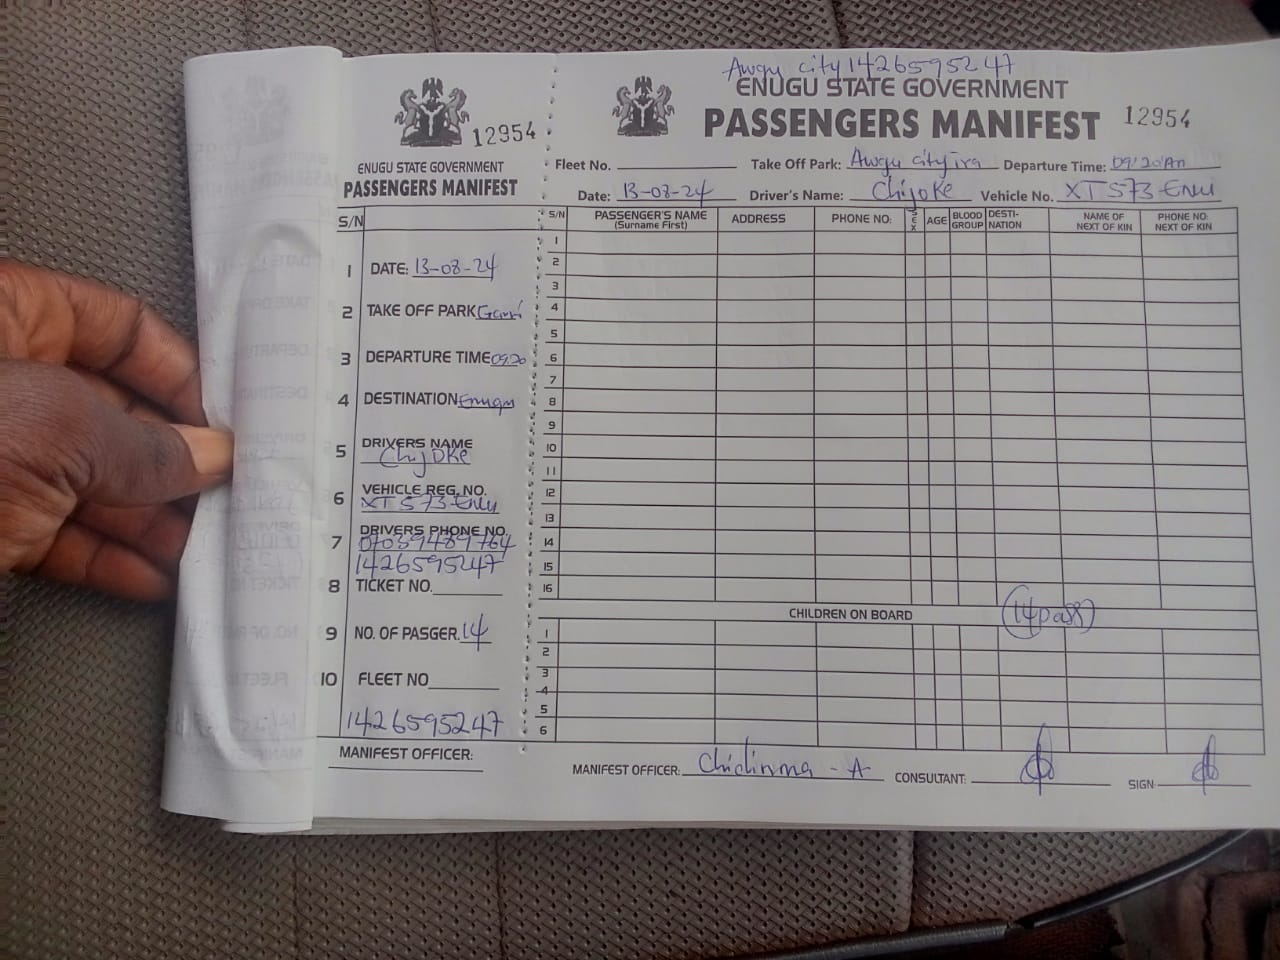 12954
ENUGU STATE GOVERNMENT
PASSENGERS MANIFEST
S/N
1 DATE: 13-08-24
2 TAKE OFF PARK
3 DEPARTURE TIME 09:20
4 DESTINATION Enugu
5 DRIVERS NAME
Chijoke
6 VEHICLE REG. NO.
XT 573 Enu
7 DRIVERS PHONE NO.
1426595247
8 TICKET NO.
9 NO. OF PASGER. 14
10 FLEET NO
1426595247
MANIFEST OFFICER:
Awgu city 1426595247
ENUGU STATE GOVERNMENT
PASSENGERS MANIFEST 12954
Fleet No. Take Off Park: Awgu city Departure Time: 09:20 Am
Date: 13-08-24 Driver's Name: Chijoke Vehicle No. XT 573 Enu
S/N PASSENGER'S NAME (Surname First) ADDRESS PHONE NO: SEX AGE BLOOD GROUP DESTI-NATION NAME OF NEXT OF KIN PHONE NO: NEXT OF KIN
1
2
3
4
5
6
7
8
9
10
11
12
13
14
15
16
CHILDREN ON BOARD 14 pass
1
2
3
4
5
6
MANIFEST OFFICER: Chidinma - A CONSULTANT: SIGN